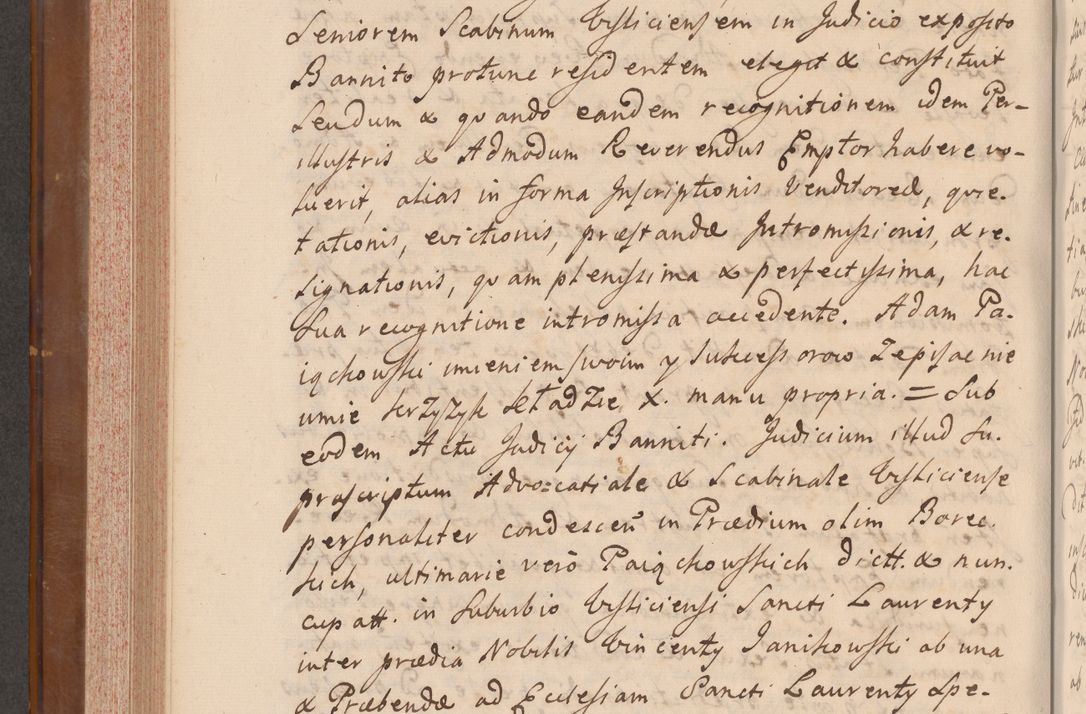 Seniorem Scabinum Visliciensem in Judicio exposito
Bannito protunc residentem elegit & constituit
Seudum & quando eandem recognitionem idem Per-
illustris & Admodum Reverendus Emptor habere vo-
luerit, alias in forma Inscriptionis Venditoreæ, quie-
tationis, evictionis, præstandæ Intromissionis, & re-
signationis, quam plenissima & perfectissima, hac
sua recognitione intromissa accedente. Adam Pa-
iąchowski imieniem swoim y Sukcessorow Zepisac nie
umie krzyzyk kładzie X. manu propria. = Sub
eodem Actu Judicij Banniti. Judicium illud su-
prascriptum Advo=catiale & Scabinale Visliciense
personaliter condescen͞ in Prædium olim Borec-
kich, ultimarie verò Paiąchowskich dictt. & nun-
cupatt. in Suburbio Visliciensi Sancti Laurenty
inter prædia Nobilis Vincenty Janikowski ab una
& Præbendæ ad Ecclesiam Sancti Laurenty Spe-